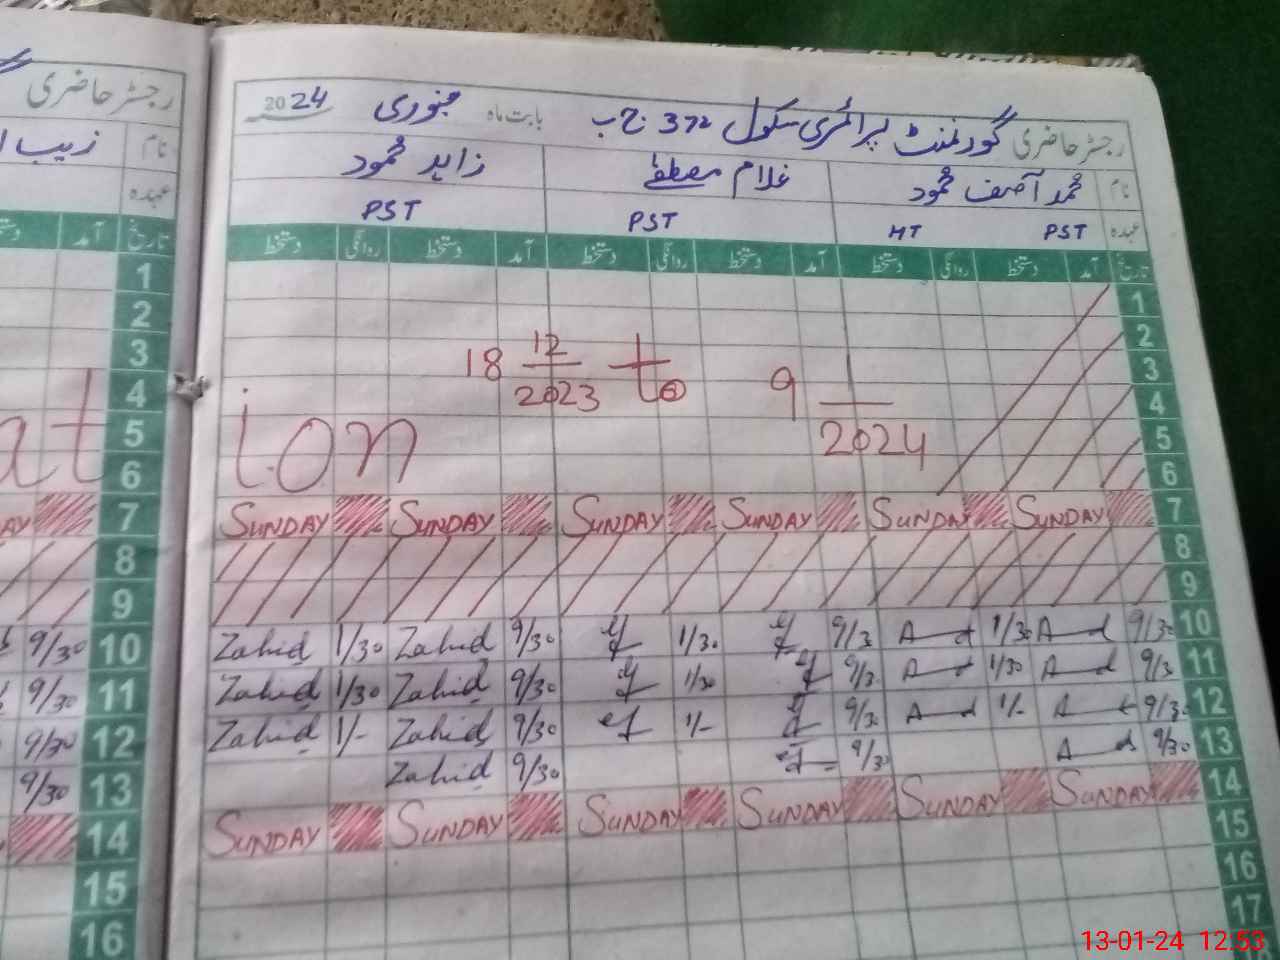 رجسٹر حاضری گورنمنٹ پرائمری سکول 372 ج ب بابت ماہ جنوری 2024
نام محمد آصف محمود غلام مصطفیٰ زاہد محمود
عہدہ PST HT PST PST
تاریخ آمد دستخط روانگی دستخط آمد دستخط روانگی دستخط آمد دستخط روانگی دستخط
1
2
3 18 12/2023 to 9 1/2024
4
5 ion
6
SUNDAY SUNDAY SUNDAY SUNDAY SUNDAY SUNDAY 7
8
9
Zahid 1/30 Zahid 9/30 1/30 9/3 A d 1/30 A d 9/30 10
Zahid 1/30 Zahid 9/30 1/30 9/3 A d 1/30 A d 9/3 11
Zahid 1/- Zahid 9/30 1/- 9/3 A d 1/- A 9/30 12
Zahid 9/30 9/30 A d 9/30 13
SUNDAY SUNDAY SUNDAY SUNDAY SUNDAY SUNDAY 14
15
16
17
رجسٹر حاضری
نام زیب
عہدہ
تاریخ آمد
1
2
3
4
5 at
6
7
8
9
9/30 10
9/30 11
9/30 12
9/30 13
14
15
16
13-01-24 12:53